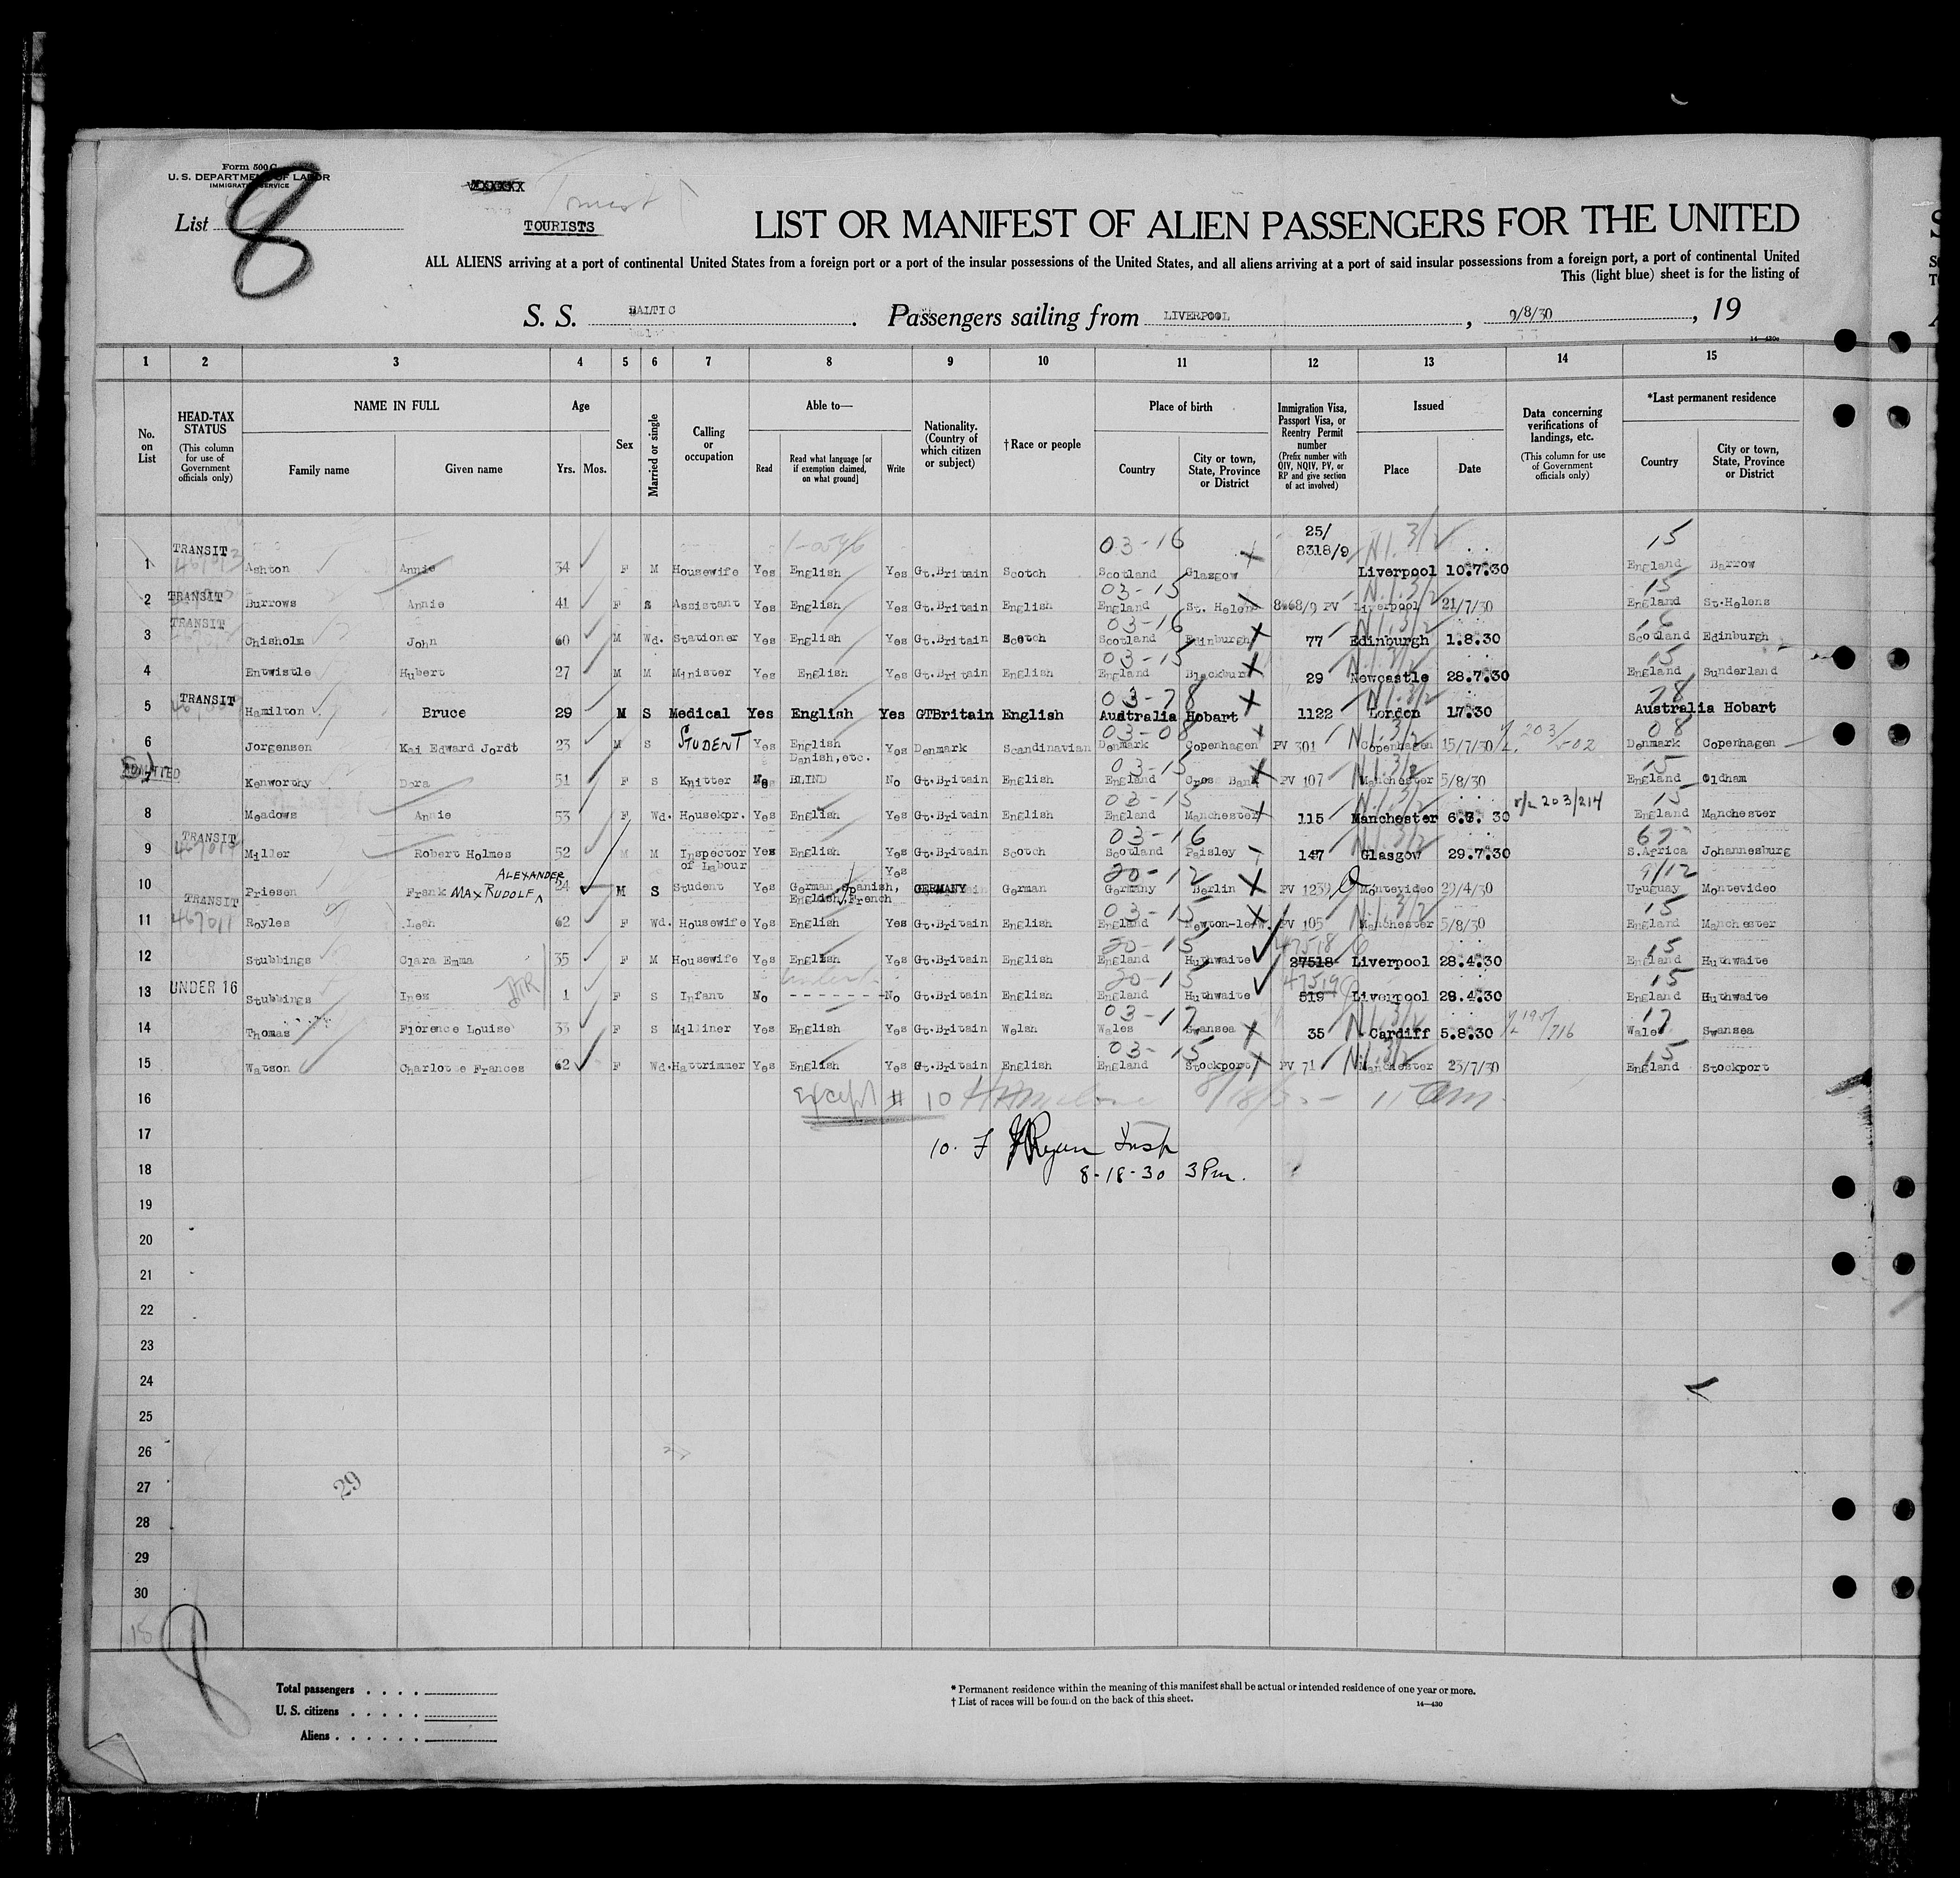 Form 500 C
U. S. DEPARTMENT OF LABOR
IMMIGRATION SERVICE
List 8
TOURISTS
Tourist
LIST OR MANIFEST OF ALIEN PASSENGERS FOR THE UNITED
ALL ALIENS arriving at a port of continental United States from a foreign port or a port of the insular possessions of the United States, and all aliens arriving at a port of said insular possessions from a foreign port, a port of continental United
This (light blue) sheet is for the listing of
S. S. BALTIC. Passengers sailing from LIVERPOOL, 9/8/30, 19
14—430c
1 2 3 4 5 6 7 8 9 10 11 12 13 14 15
No. on List
HEAD-TAX STATUS
(This column for use of Government officials only)
NAME IN FULL
Family name Given name
Age
Yrs. Mos.
Sex
Married or single
Calling or occupation
Able to—
Read
Read what language [or if exemption claimed, on what ground]
Write
Nationality. (Country of which citizen or subject)
† Race or people
Place of birth
Country
City or town, State, Province or District
Immigration Visa, Passport Visa, or Reentry Permit number
(Prefix number with QIV, NQIV, PV, or RP and give section of act involved)
Issued
Place Date
Data concerning verifications of landings, etc.
(This column for use of Government officials only)
*Last permanent residence
Country
City or town, State, Province or District
03-16 25/ 8318/9 N.1.3/2 15
1 TRANSIT Ashton Annie 34 F M Housewife Yes English Yes Gt.Britain Scotch Scotland Glasgow Liverpool 10.7.30 England Barrow
03-15 N.1.3/2 15
2 TRANSIT Burrows Annie 41 F S Assistant Yes English Yes Gt.Britain English England St. Helens 8668/9 PV Liverpool 21/7/30 England St.Helens
03-16 N.1.3/2 16
3 TRANSIT Chisholm John 60 M Wd. Stationer Yes English Yes Gt.Britain Scotch Scotland Edinburgh 77 Edinburgh 1.8.30 Scotland Edinburgh
03-15 N.1.3/2 15
4 Entwistle Hubert 27 M M Minister Yes English Yes Gt.Britain English England Blackburn 29 Newcastle 28.7.30 England Sunderland
03-78 N.1.3/2 78
5 TRANSIT Hamilton Bruce 29 M S Medical Yes English Yes GTBritain English Australia Hobart 1122 London 17.30 Australia Hobart
03-08 N.1.3/2 08
6 Jorgensen Kai Edward Jordt 23 M S STUDENT Yes English Danish,etc. Yes Denmark Scandinavian Denmark Copenhagen PV 301 Copenhagen 15/7/30 Denmark Copenhagen
03-15 N.1.3/2 15
7 ADMITTED Kenworthy Dora 51 F S Knitter No BLIND No Gt.Britain English England Cross Bank PV 107 Manchester 5/8/30 England Oldham
03-15 N.1.3/2 15
8 Meadows Annie 53 F Wd. Housekpr. Yes English Yes Gt.Britain English England Manchester 115 Manchester 6.8.30 r/L 203/214 England Manchester
03-16 N.1.3/2 67
9 TRANSIT Miller Robert Holmes 52 M M Inspector of Labour Yes English Yes Gt.Britain Scotch Scotland Paisley 147 Glasgow 29.7.30 S.Africa Johannesburg
20-12
10 Priesen Frank MAX RUDOLF ALEXANDER 24 M S Student Yes German, Spanish, English, French Yes GERMANY German Germany Berlin PV 1239 Montevideo 29/4/30 Uruguay Montevideo
03-15 N.1.3/2 15
11 TRANSIT 467011 Royles Leah 62 F Wd. Housewife Yes English Yes Gt.Britain English England Newton-le-W. PV 105 Manchester 5/8/30 England Manchester
20-15 47518 15
12 Stubbings Clara Emma 35 F M Housewife Yes English Yes Gt.Britain English England Huthwaite 27518 Liverpool 28.4.30 England Huthwaite
20-15 47519 15
13 UNDER 16 Stubbings Inez 1 F S Infant No - - - - - - - No Gt.Britain English England Huthwaite 519 Liverpool 28.4.30 England Huthwaite
03-17 N.1.3/2 17
14 Thomas Florence Louise 35 F S Milliner Yes English Yes Gt.Britain Welsh Wales Swansea 35 Cardiff 5.8.30 Wales Swansea
03-15 N.1.3/2 15
15 Watson Charlotte Frances 62 F Wd. Hattrimmer Yes English Yes Gt.Britain English England Stockport PV 71 Manchester 23/7/30 England Stockport
16 Except # 10 8/18/30 11 am.
17 10. F J Ryan Insp
18 8-18-30 3 Pm.
19
20
21
22
23
24
25
26
27
29
28
29
30
15
8
Total passengers
U. S. citizens
Aliens
* Permanent residence within the meaning of this manifest shall be actual or intended residence of one year or more.
† List of races will be found on the back of this sheet.
14—430